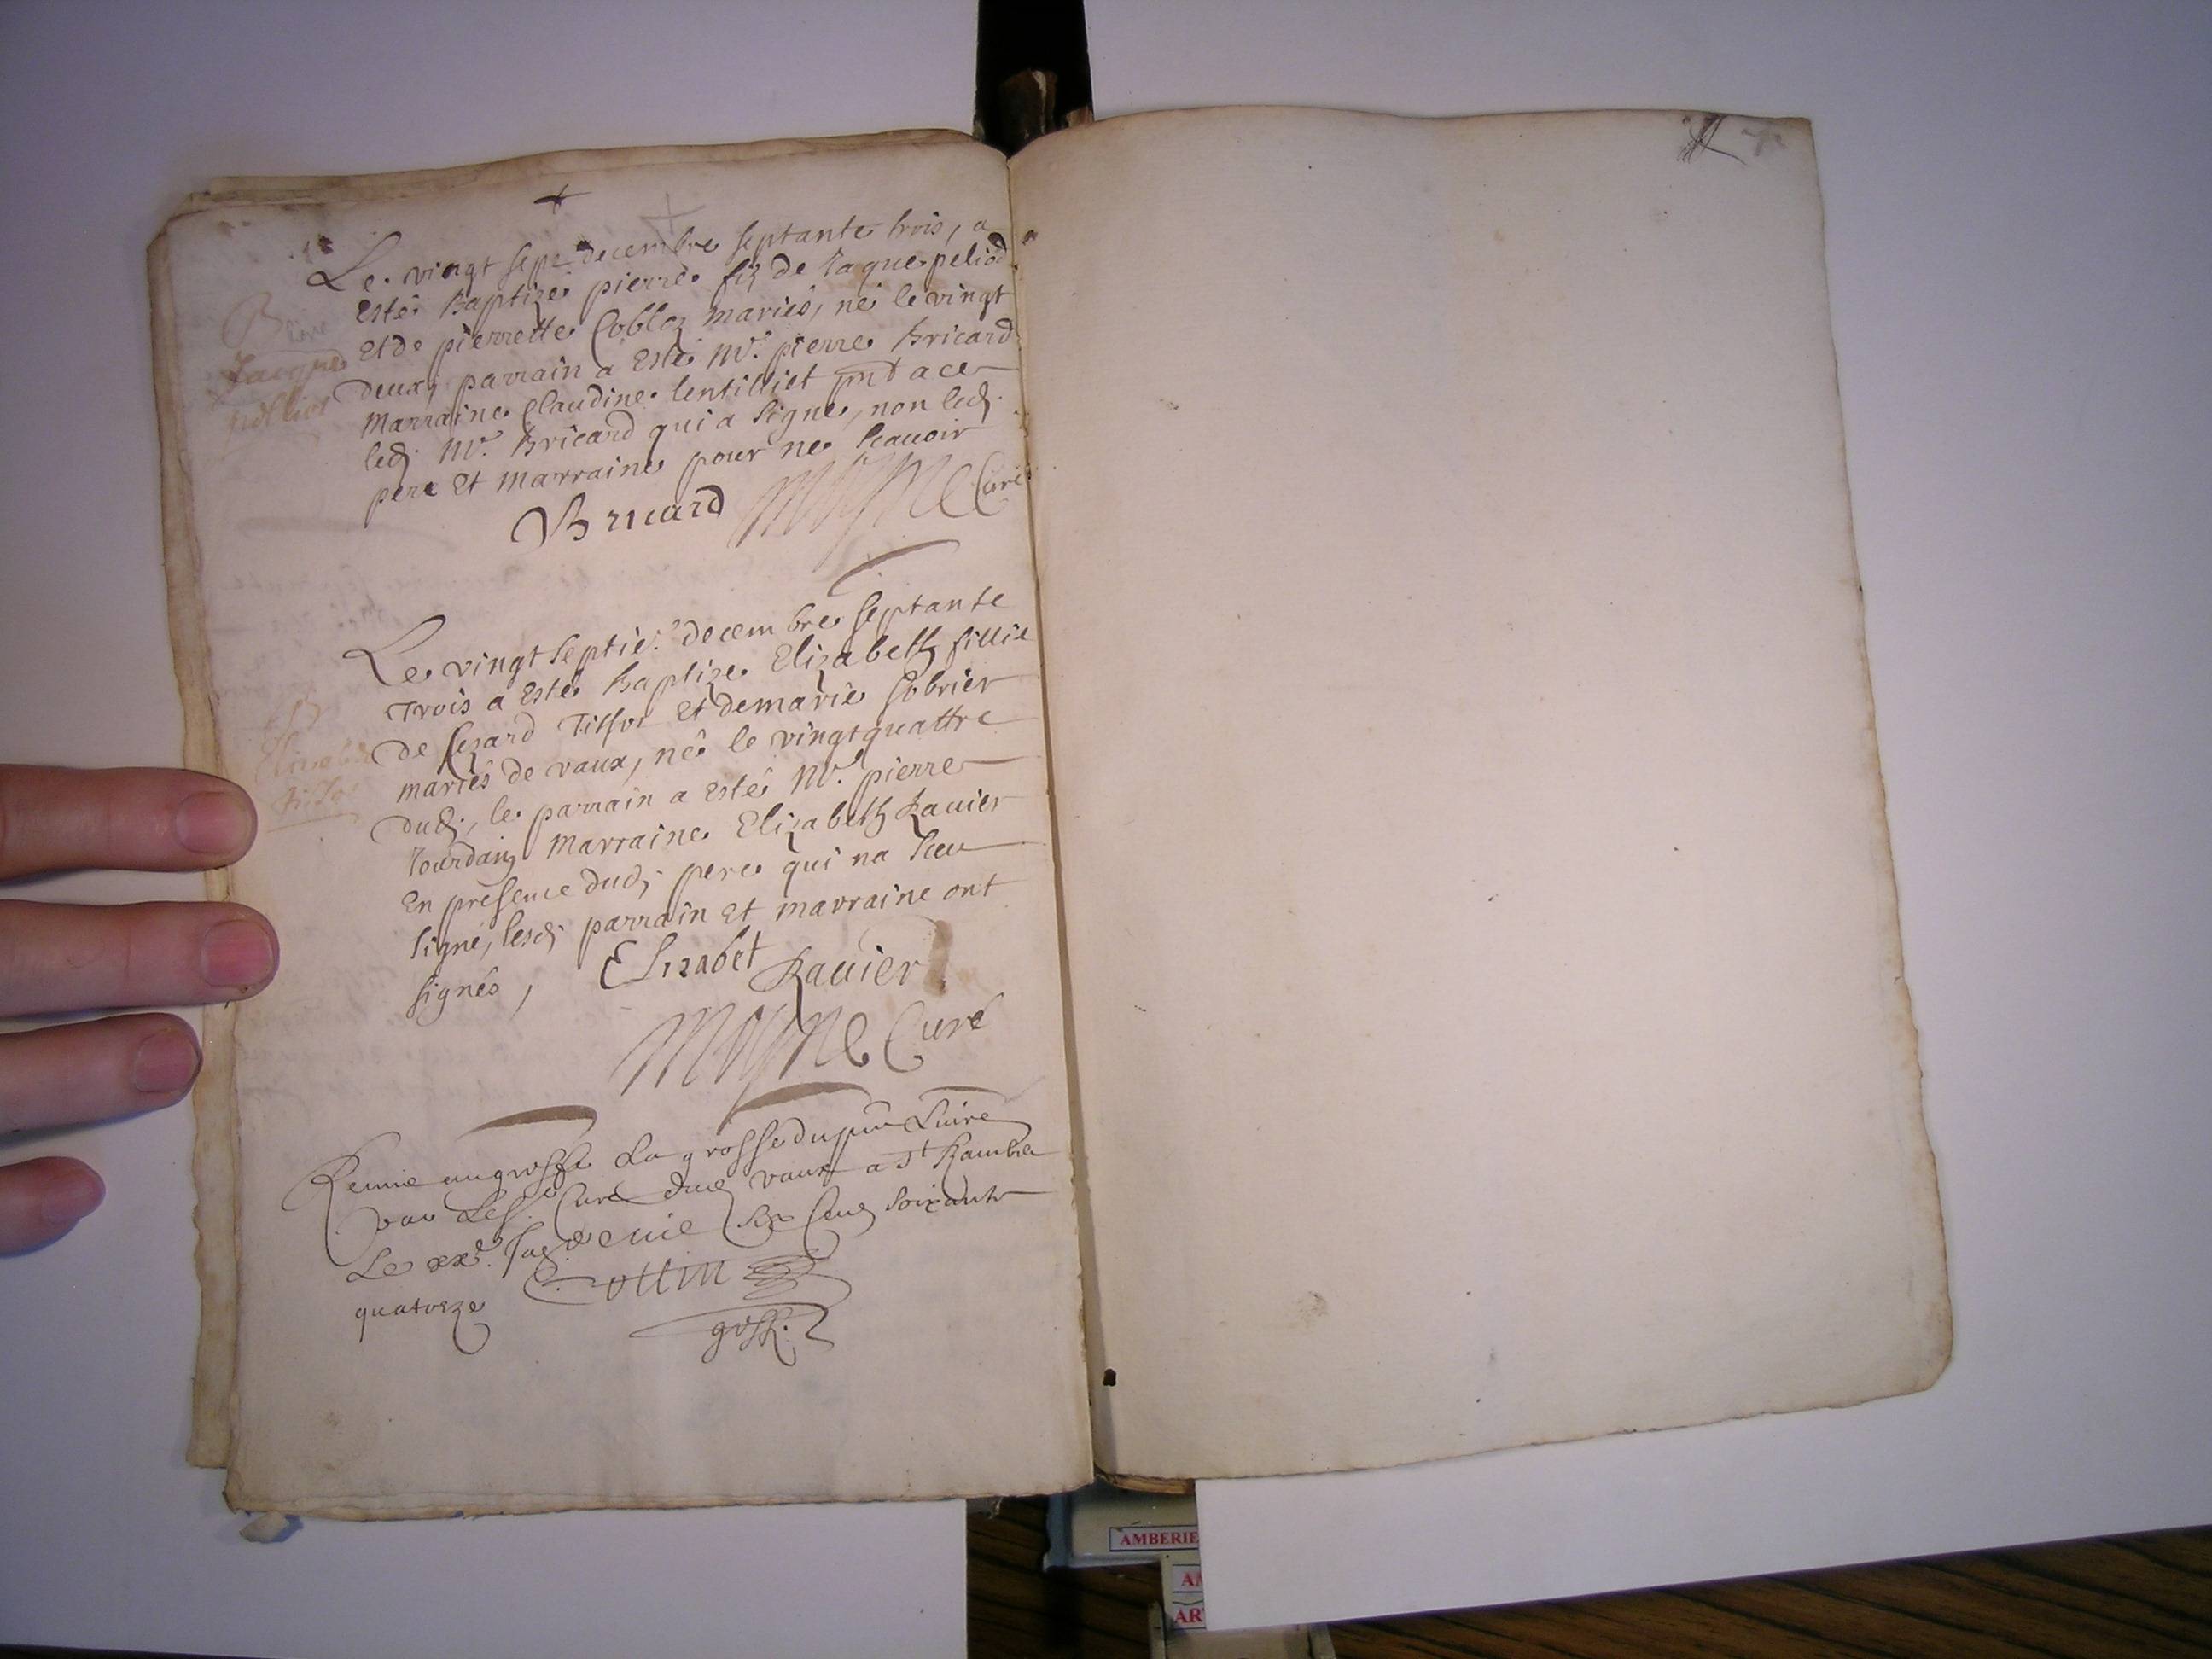 Le vingt sept decembre septante trois, a
esté baptizé pierre fiz de Jaque peliod
et de pierrette Cobloz mariés, né le vingt
deux, parrain a esté Mr. pierre Bricard
marraine Claudine lentilliet pnt a ce
led. Mr. Bricard qui a signe, non led.
pere et marraine pour ne scauoir
Bricard Moyne Curé
Jacque
Le vingt septie. decembre septante
trois a esté baptize Elizabeth fillie
de Cezard Tissot et de marie Cobrier
mariés de vaux, née le vingt quattre
dud., le parrain a esté Mr. pierre
Jourdain marraine Elizabeth Rauier
en presence dud. pere qui na sceu
signé, lesd. parrain et marraine ont
signés, Elizabet Rauier
Moyne Curé
Elizabet
tissot
La grosse du pnt Liure
par Les. Curé dud vaux a St Rambert
Le xxe. six Cens soixante
quatorze Cottin
greff.
AMBERIE
AR